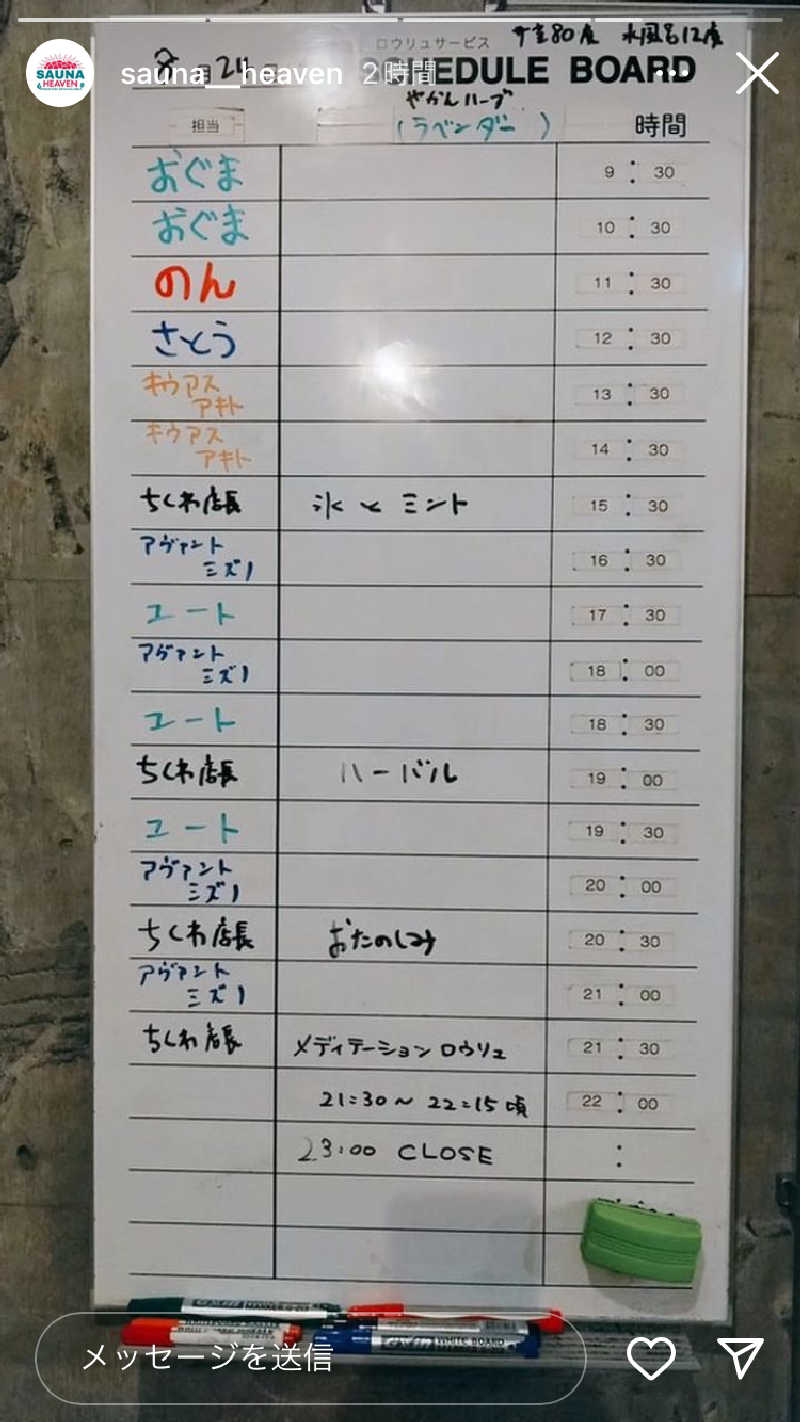 サ室80度 水風呂12度
ロウリュサービス
SAUNA HEAVEN
sauna__heaven 2時間
8月24日
EDULE BOARD
やかんハーブ
担当 (ラベンダー) 時間
おぐま 9:30
おぐま 10:30
のん 11:30
さとう 12:30
キウアス アキト 13:30
キウアス アキト 14:30
ちくわ店長 氷とミント 15:30
アヴァント ミズノ 16:30
ユート 17:30
アヴァント ミズノ 18:00
ユート 18:30
ちくわ店長 ハーバル 19:00
ユート 19:30
アヴァント ミズノ 20:00
ちくわ店長 おたのしみ 20:30
アヴァント ミズノ 21:00
ちくわ店長 メディテーションロウリュ 21:30
21:30~22:15頃 22:00
23:00 CLOSE :
WHITE BOARD
メッセージを送信